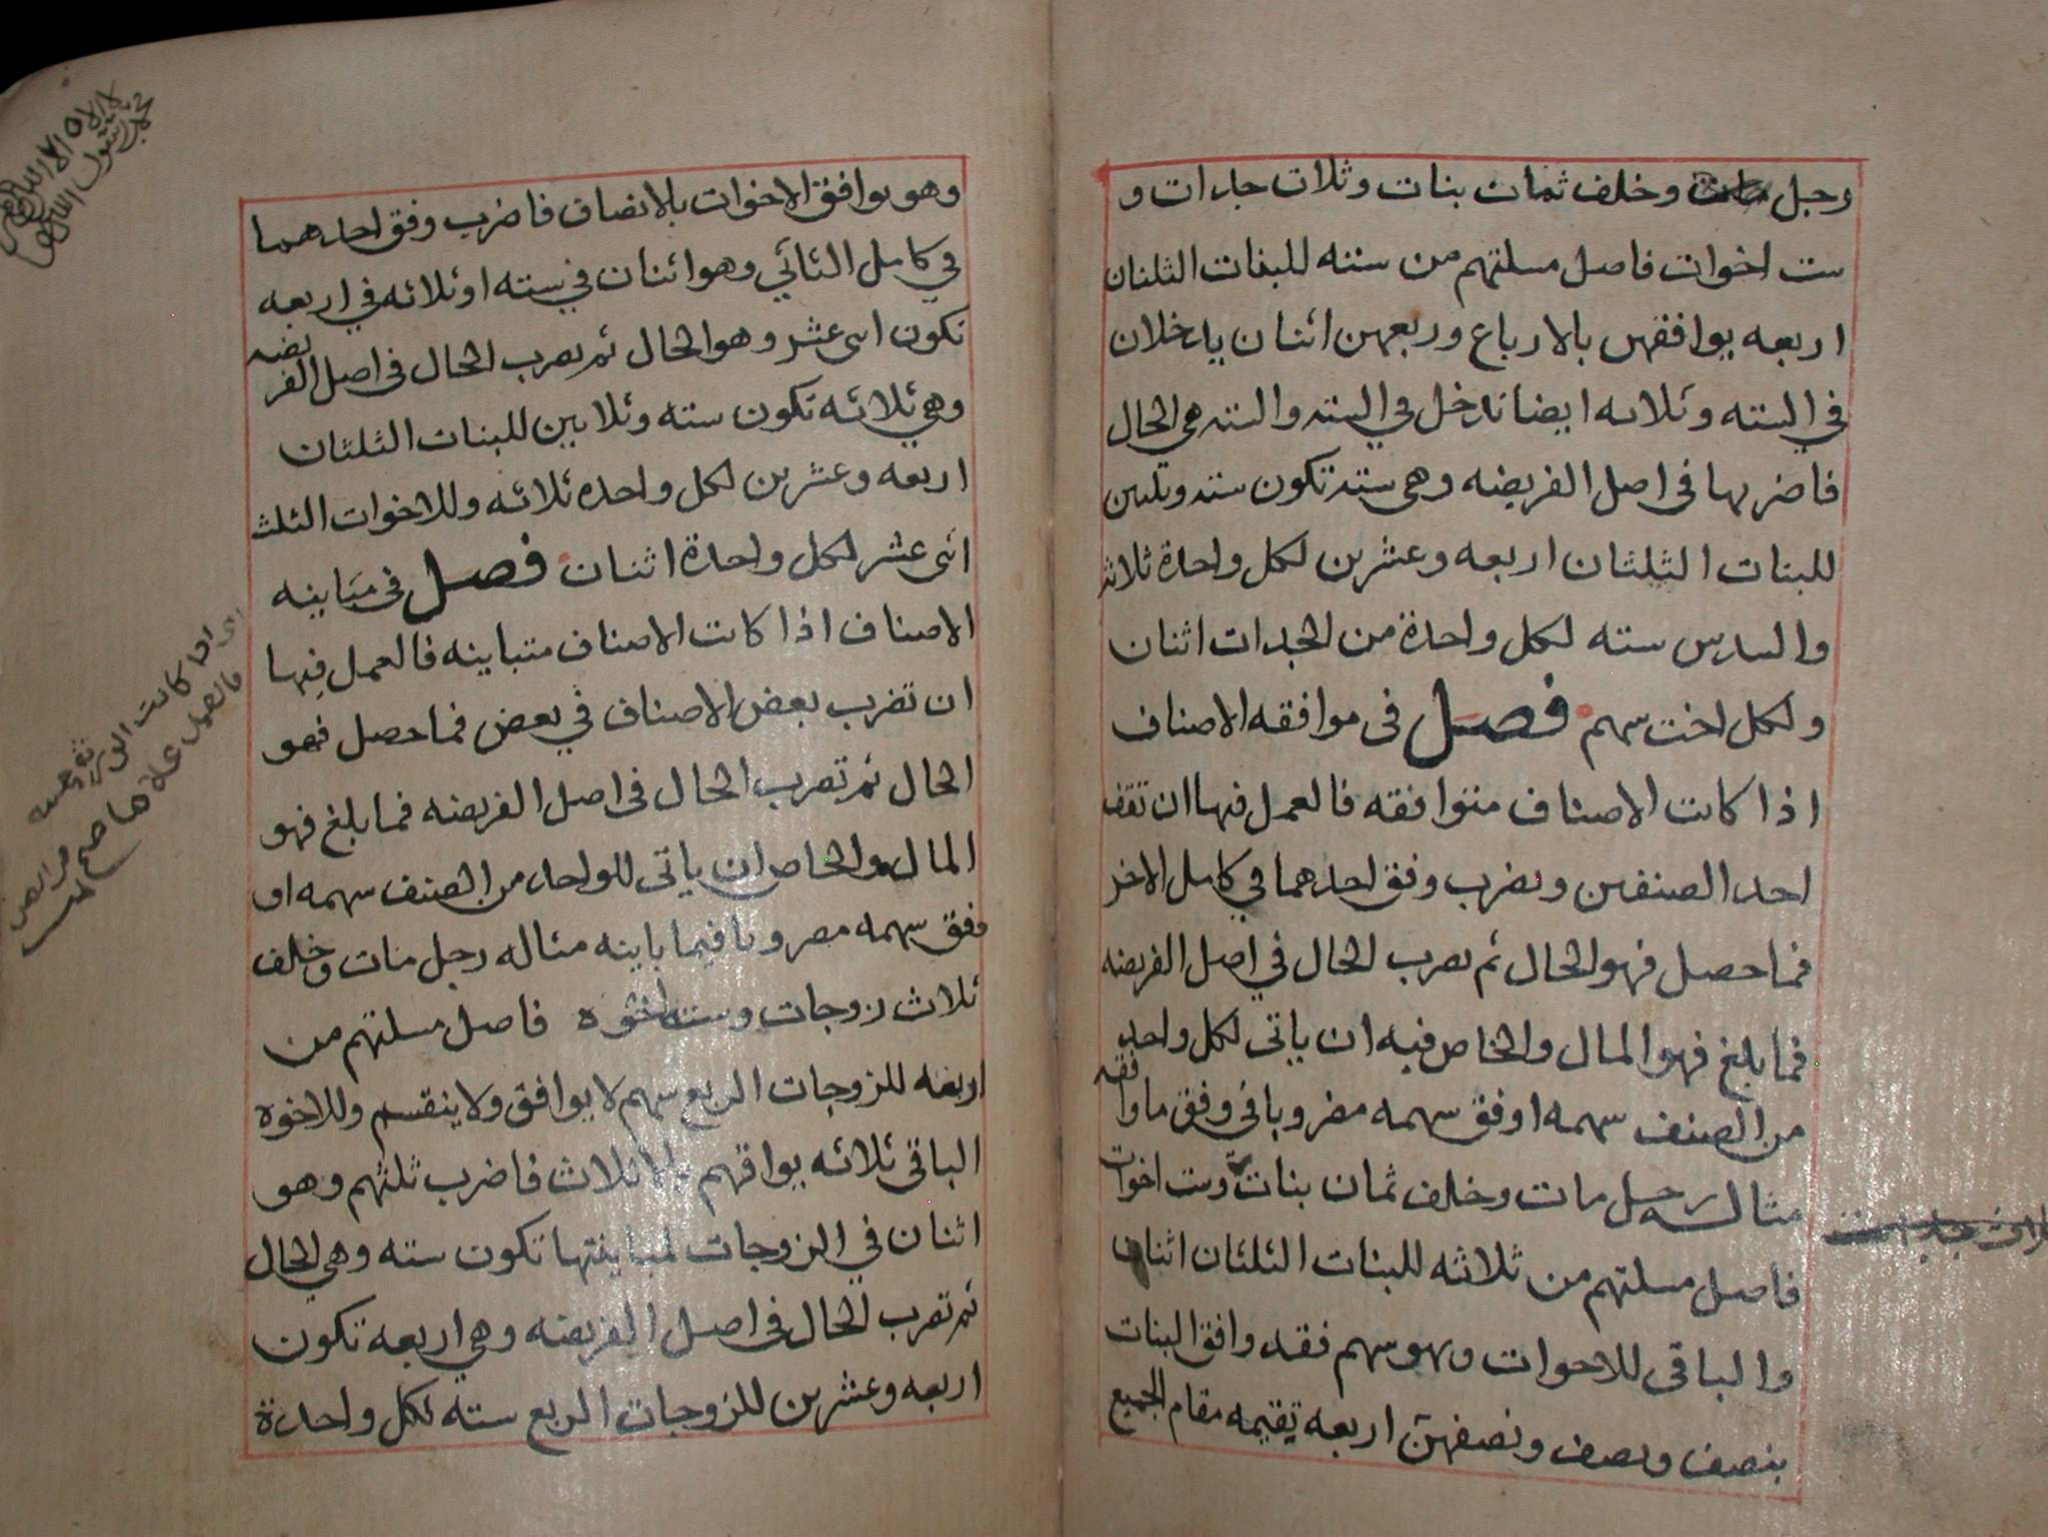 رجل مات وخلف ثمان بنات وثلاث جدات و
ست اخوات فاصل مسلتهم من سته للبنات الثلثان
اربعه يوافقهن بالارباع وربعهن اثنان ياخلان
في السته وثلاثه ايضا تدخل في السته والسته هي الحال
فاضربها في اصل الفريضه وهي سته تكون سته وثلثين
للبنات الثلثان اربعه وعشرين لكل واحدة ثلاثه
والسدس سته لكل واحدة من الجدات اثنان
ولكل اخت سهم فصل في موافقه الاصناف
اذا كانت الاصناف متوافقه فالعمل فيها ان تقف
احد الصنفين وبضرب وفق احدهما في كامل الاخر
فما حصل فهو الحال ثم بضرب الحال في اصل الفريضه
فما بلغ فهو المال والخاص فيه ان ياتى لكل واحد
من الصنف سهمه او فق سهمه مضروبا في وفق ما وافقه
مثاله رجل مات وخلف ثمان بنات وست اخوات
فاصل مسلتهم من ثلاثه للبنات الثلثان اثنان
والباقى للاخوات وهو سهم فقد وافق البنات
بنصف ونصف ونصفهن اربعه تقيمه مقام الجميع
وهو يوافق الاخوات بالانصاف فاضرب وفق احدهما
في كامل الثاني وهو اثنان في سته او ثلاثه في اربعه
تكون اثنى عشر وهو الحال ثم بضرب الحال في اصل الفريضه
وهي ثلاثه تكون سته وثلاثين للبنات الثلثان
اربعه وعشرين لكل واحده ثلاثه وللاخوات الثلث
اثنى عشر لكل واحدة اثنان فصل في مباينه
الاصناف اذا كانت الاصناف متباينه فالعمل فيها
ان تضرب بعض الاصناف في بعض فما حصل فهو
الحال ثم تضرب الحال في اصل الفريضه فما بلغ فهو
المال والخاص ان ياتى للواحد من الصنف سهمه او
وفق سهمه مضروبا فيما باينه مثاله رجل مات وخلف
ثلاث زوجات وسته اخوه فاصل مسلتهم من
اربعه للزوجات الربع سهم لا يوافق ولا ينقسم وللاخوه
الباقى ثلاثه يوافقهم بالاثلاث فاضرب ثلثهم وهو
اثنان في الزوجات لمباينتها تكون سته وهي الحال
ثم تضرب الحال في اصل الفريضه وهي اربعه تكون
اربعه وعشرين للزوجات الربع سته لكل واحدة
لا اله الا الله
محمد رسول الله
اذا كانت الورثة
فالعمل